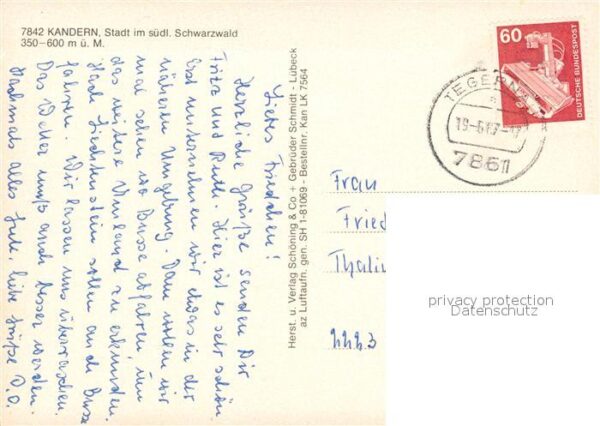 7842 KANDERN, Stadt im südl. Schwarzwald
350–600 m ü. M.
Liebes Friedchen!
Herzliche Grüße senden Dir
Fritz und Ruth. Hier ist es sehr schön.
Erst unternehmen wir etwas in der
näheren Umgebung. Dann wollen wir
mal sehen wo Busse abfahren, um
das weitere Umland zu erkunden.
Nach Liechtenstein sollen auch Busse
fahren. Wir lassen uns überraschen.
Das Wetter muß auch besser werden.
Nochmals alles Gute, liebe Grüße D.O.
Herst. u. Verlag Schöning & Co + Gebrüder Schmidt - Lübeck
az Luftaufn. gen. SH 1-81069 - Bestellnr. Kan LK 7564
60
DEUTSCHE BUNDESPOST
TEGERN
19-6
7861
Frau
Fried
Thalin
2223
privacy protection
Datenschutz